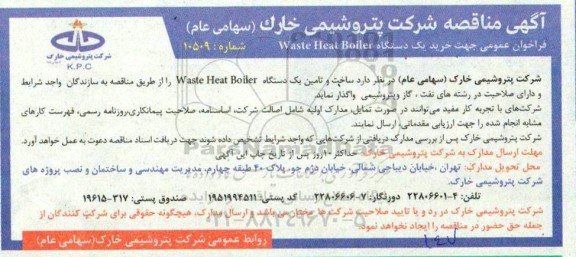 آگهی مناقصه شرکت پتروشیمی خارك (سهامی عام)
فراخوان عمومی جهت خرید یک دستگاه Waste Heat Boiler شماره : ۱۰۵۰۹
شرکت پتروشیمی خارک
K.P.C
شرکت پتروشیمی خارک (سهامی عام) در نظر دارد ساخت و تامین یک دستگاه Waste Heat Boiler را از طریق مناقصه به سازندگان واجد شرایط
و دارای صلاحیت در رشته های نفت ، گاز و پتروشیمی واگذار نماید.
شرکت‌های با تجربه کار مفید می‌توانند در صورت تمایل، مدارک اولیه شامل اصالت شرکت، اساسنامه، صلاحیت پیمانکاری،روزنامه رسمی، فهرست کارهای
مشابه انجام شده را جهت ارزیابی مقدماتی، ارسال نمایند.
شرکت پتروشیمی خارک پس از بررسی مدارک دریافتی از شرکت‌هایی که واجد شرایط تشخیص داده شوند جهت دریافت اسناد مناقصه دعوت به عمل خواهد آورد.
مهلت ارسال مدارک به شرکت پتروشیمی خارک: حداکثر ۱۰ روز پس از تاریخ چاپ این آگهی
محل تحویل مدارک: تهران ،خیابان دیباجی شمالی، خیابان دژم جو، پلاک ۴۰ طبقه چهارم، مدیریت مهندسی و ساختمان و نصب پروژه های
شرکت پتروشیمی خارک.
تلفن: ۴-۲۲۸۰۶۶۰۱ دورنگار: ۷-۲۲۸۰۶۶۰۶ کد پستی: ۱۹۵۱۹۹۴۵۱۱ صندوق پستی: ۳۱۷-۱۹۶۱۵
شرکت پتروشیمی خارک در رد و یا تایید صلاحیت شرکت ها مختار می باشد و ارسال مدارک، هیچگونه حقوقی برای شرکت کنندگان از
جمله حق حضور در مناقصه را ایجاد نخواهد نمود.
روابط عمومی شرکت پتروشیمی خارک(سهامی عام)